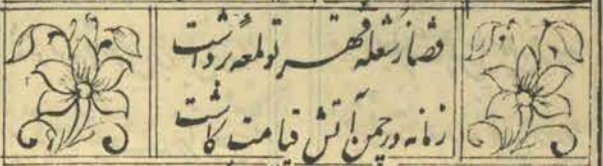 قضا ز شعله قهر تو لمعه برداشت
زمانه در چمن آتش قیامت کاشت